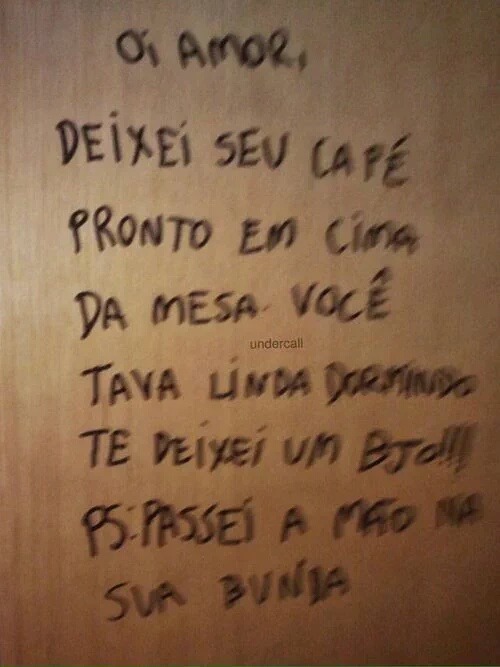 Oi AMOR,
DEIXEI SEU CAFÉ
PRONTO EM CIMA
DA MESA. VOCÊ
undercali
TAVA LINDA DORMINDO
TE DEIXEI UM BJO!!!
PS: PASSEI A MÃO NA
SUA BUNDA